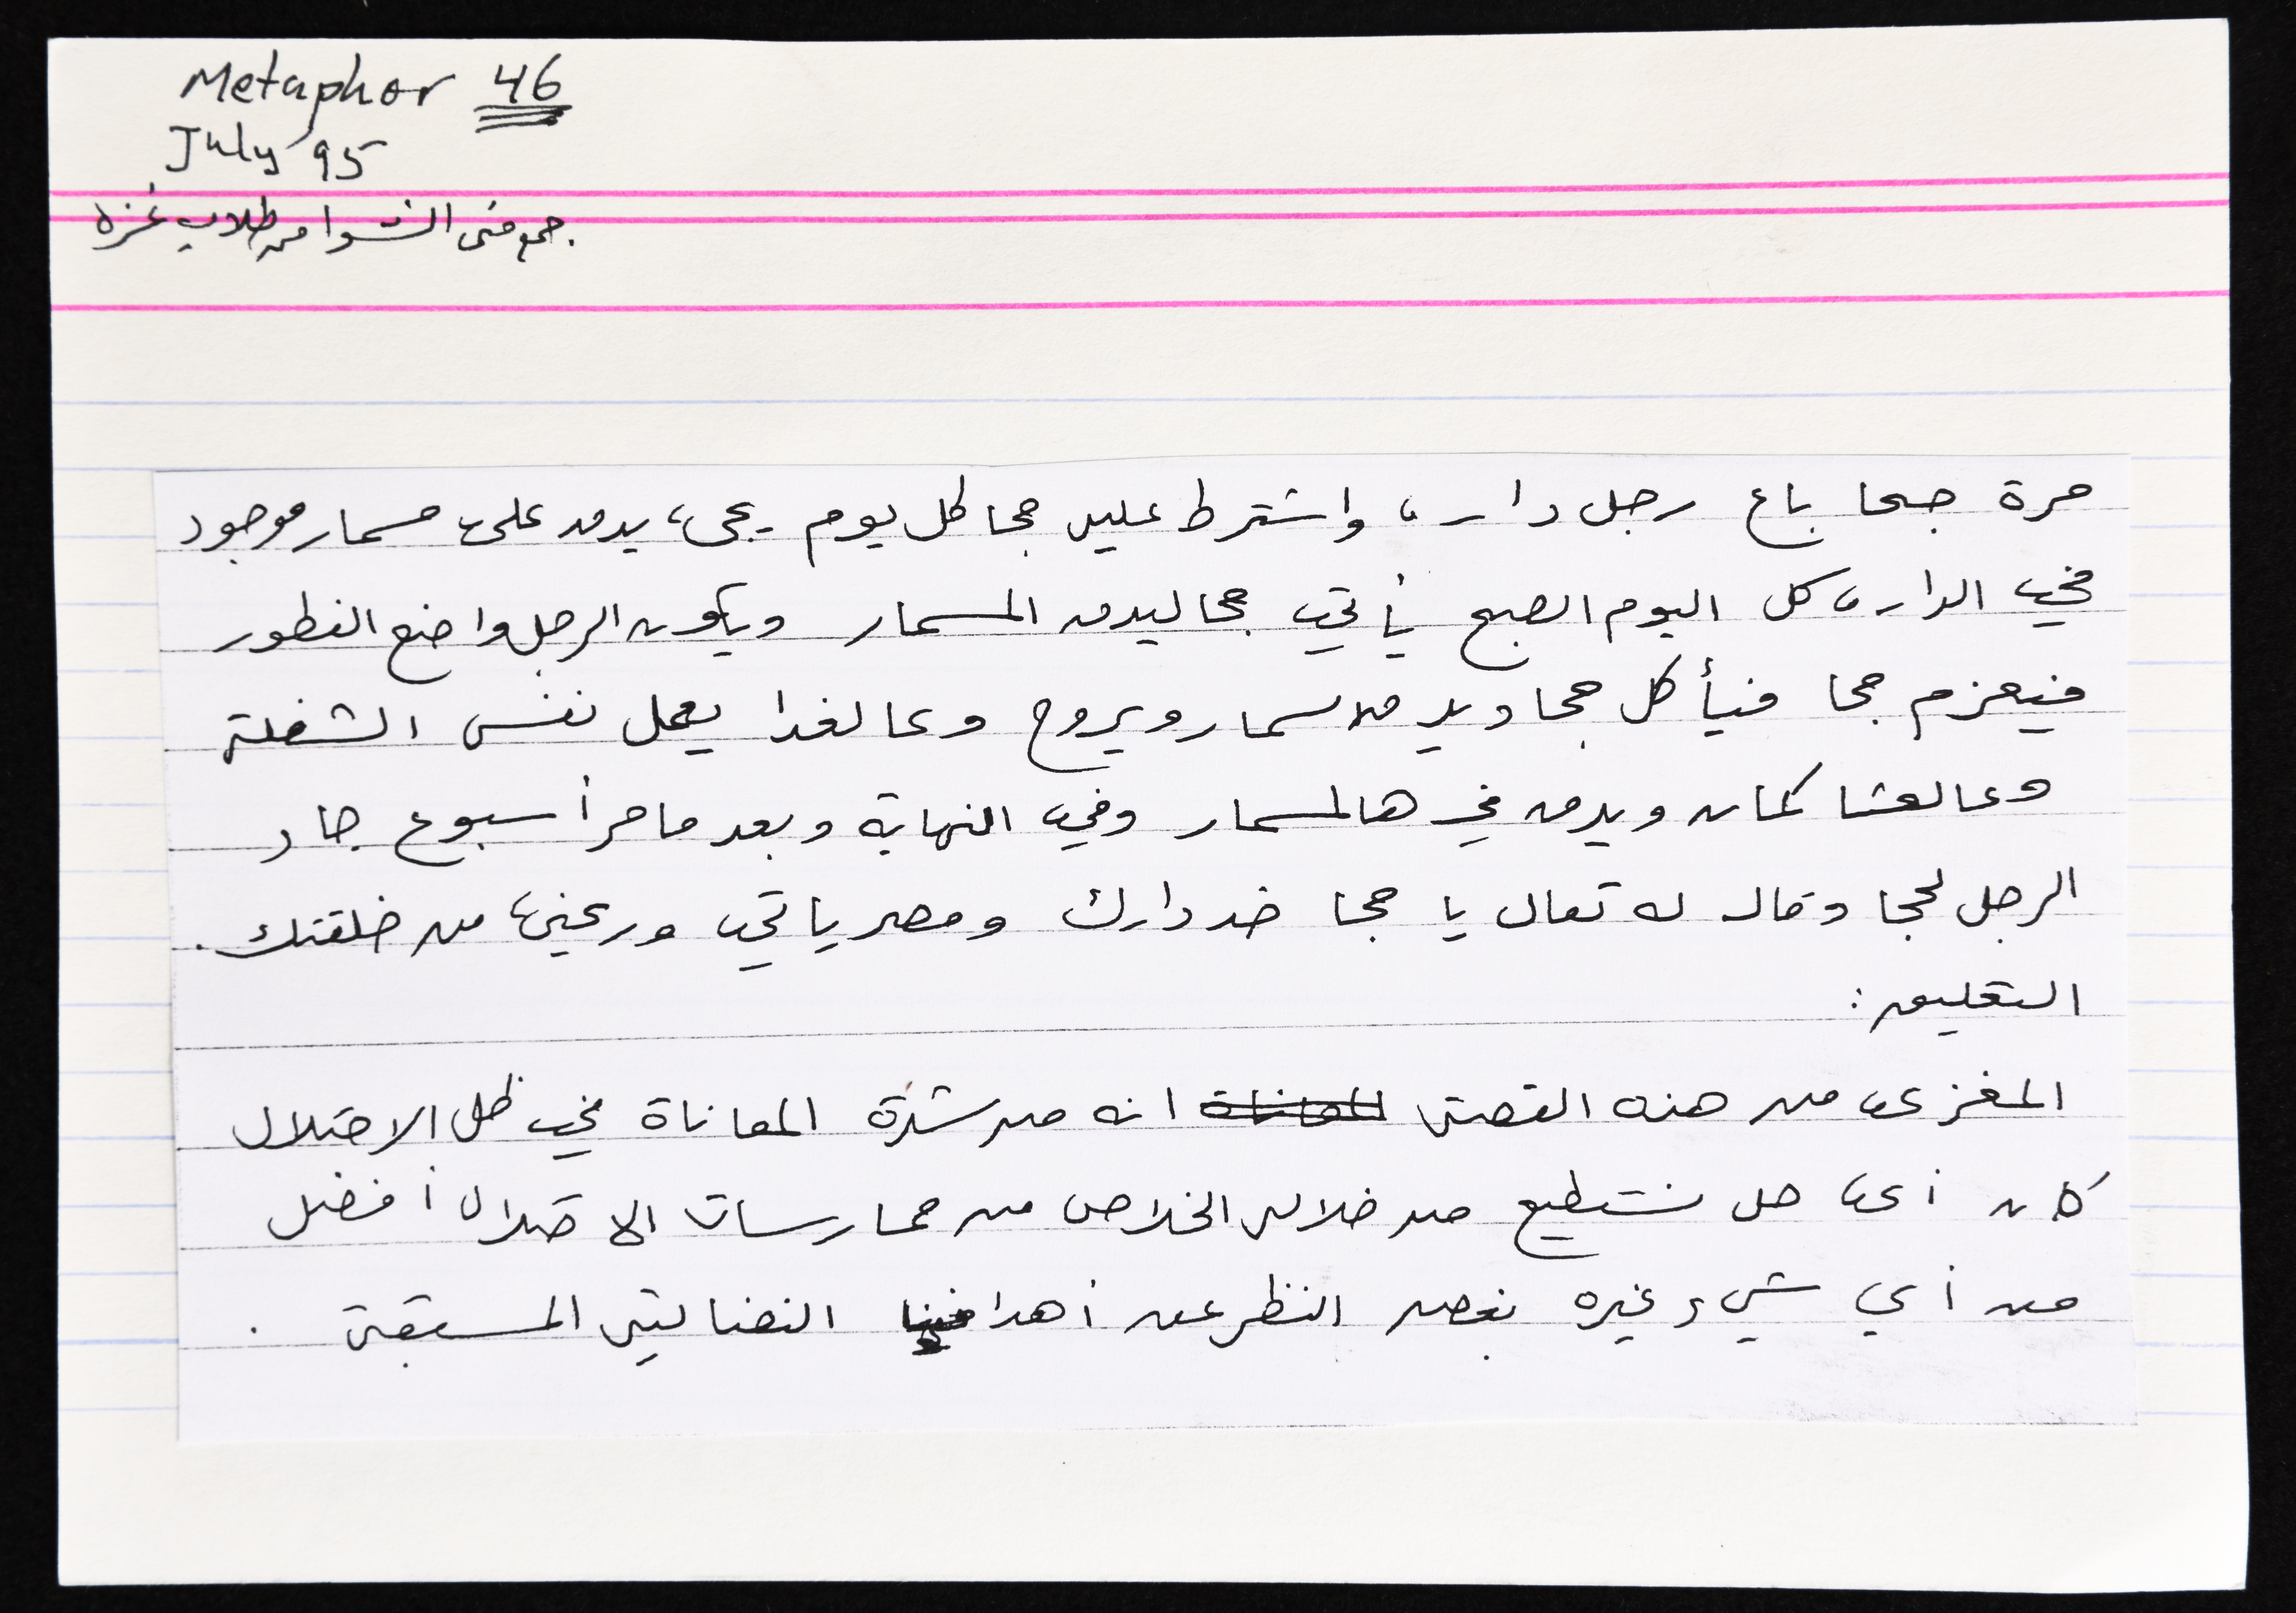 Metaphor 46
July 95
جمع منى الشوا من طلاب غزه
مرة جحا باع رجل دار، واشترط عليه جحا كل يوم يجيء يدق على مسمار موجود
في الدار، كل اليوم الصبح يأتي جحا ليدق المسمار ويكون الرجل واضع الفطور
فيعزم جحا فيأكل جحا ويدق المسمار ويروح وعالغدا يعمل نفس الشغلة
وعالعشا كمان ويدق في هالمسمار وفي النهاية وبعد ما مر أسبوع جاء
الرجل لجحا وقال له تعال يا جحا خد دارك ومصرياتي وريحني من خلقتك.
التعليق:
المغزى من هذه القصة المعاناة انه من شدة المعاناة في ظل الاحتلال
كان أي حل نستطيع من خلاله الخلاص من ممارسات الاحتلال أفضل
من أي شيء غيره بغض النظر عن أهدافنا النضالية المسبقة.